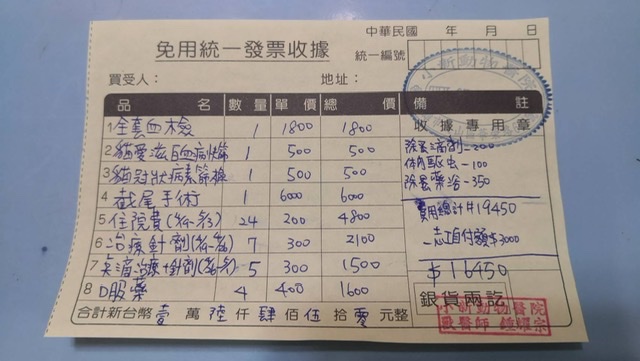 中華民國 年 月 日
免用統一發票收據
統一編號
買受人： 地址：
品名 數量 單價 總價 備註
1 全套血檢 1 1800 1800
2 貓愛滋白血病快篩 1 500 500
3 貓冠狀病毒篩檢 1 500 500
4 截尾手術 1 6000 6000
5 住院費 24 200 4800
6 治療針劑 7 300 2100
7 點滴治療+針劑 5 300 1500
8 口服藥 4 400 1600
合計新台幣壹萬陸仟肆佰伍拾零元整
收據專用章
除蚤滴劑-200
體內驅虫-100
除蚤藥浴-350
費用總計#19450
-志工自付額$3000
$16450
銀貨兩訖
小新動物醫院
小新動物醫院
獸醫師 鍾耀宗